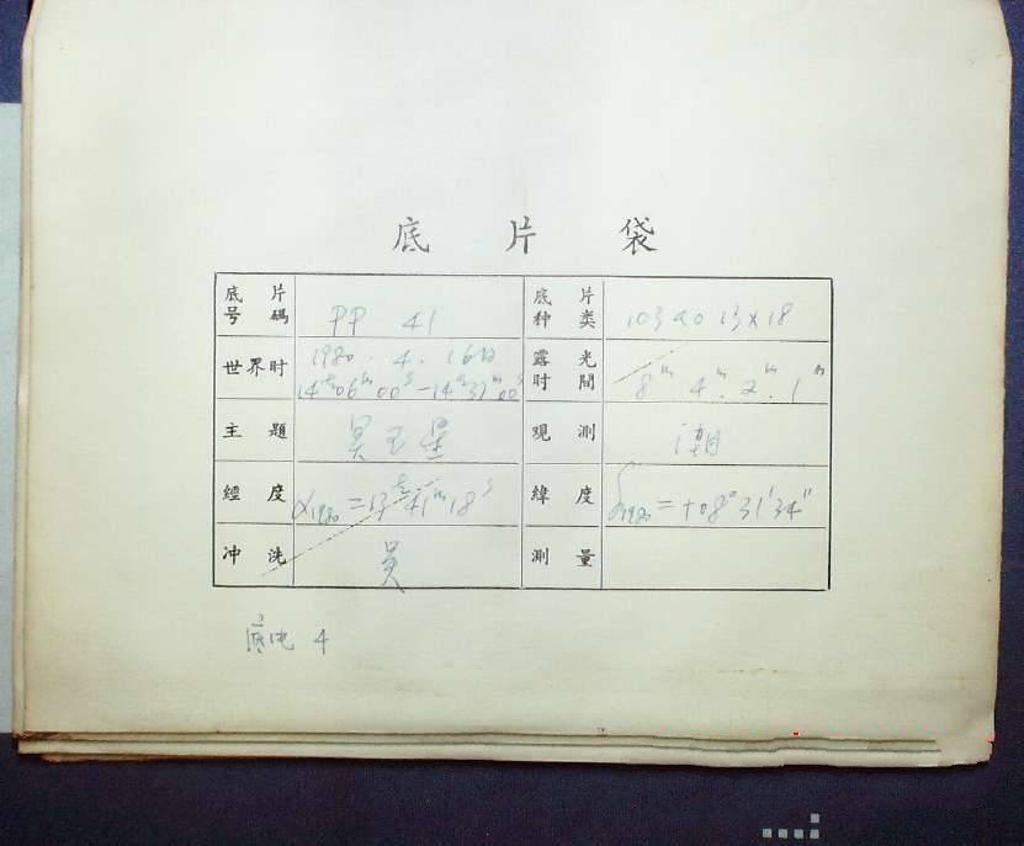 底 片 袋
底片号碼 PP 41
底片种类 103aO 13×18
世界时 1980. 4. 16日
14ʰ06ᵐ00ˢ—14ʰ37ᵐ00ˢ
露光时間 8ᵐ. 4ᵐ. 2ᵐ. 1ᵐ
主題 冥王星
观測
經度 α₁₉₈₀=13ʰ41ᵐ18ˢ
緯度 δ₁₉₈₀=+08°31′34″
冲洗 吴
測量
4